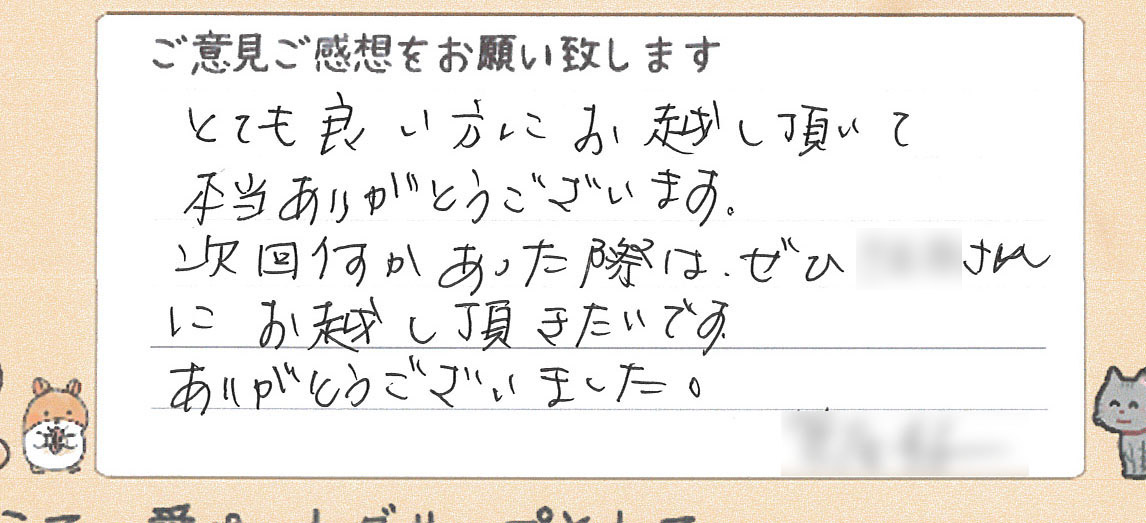 ご意見ご感想をお願い致します
とても良い方にお越し頂いて
本当ありがとうございます。
次回何かあった際は、ぜひ さん
にお越し頂きたいです
ありがとうございました。